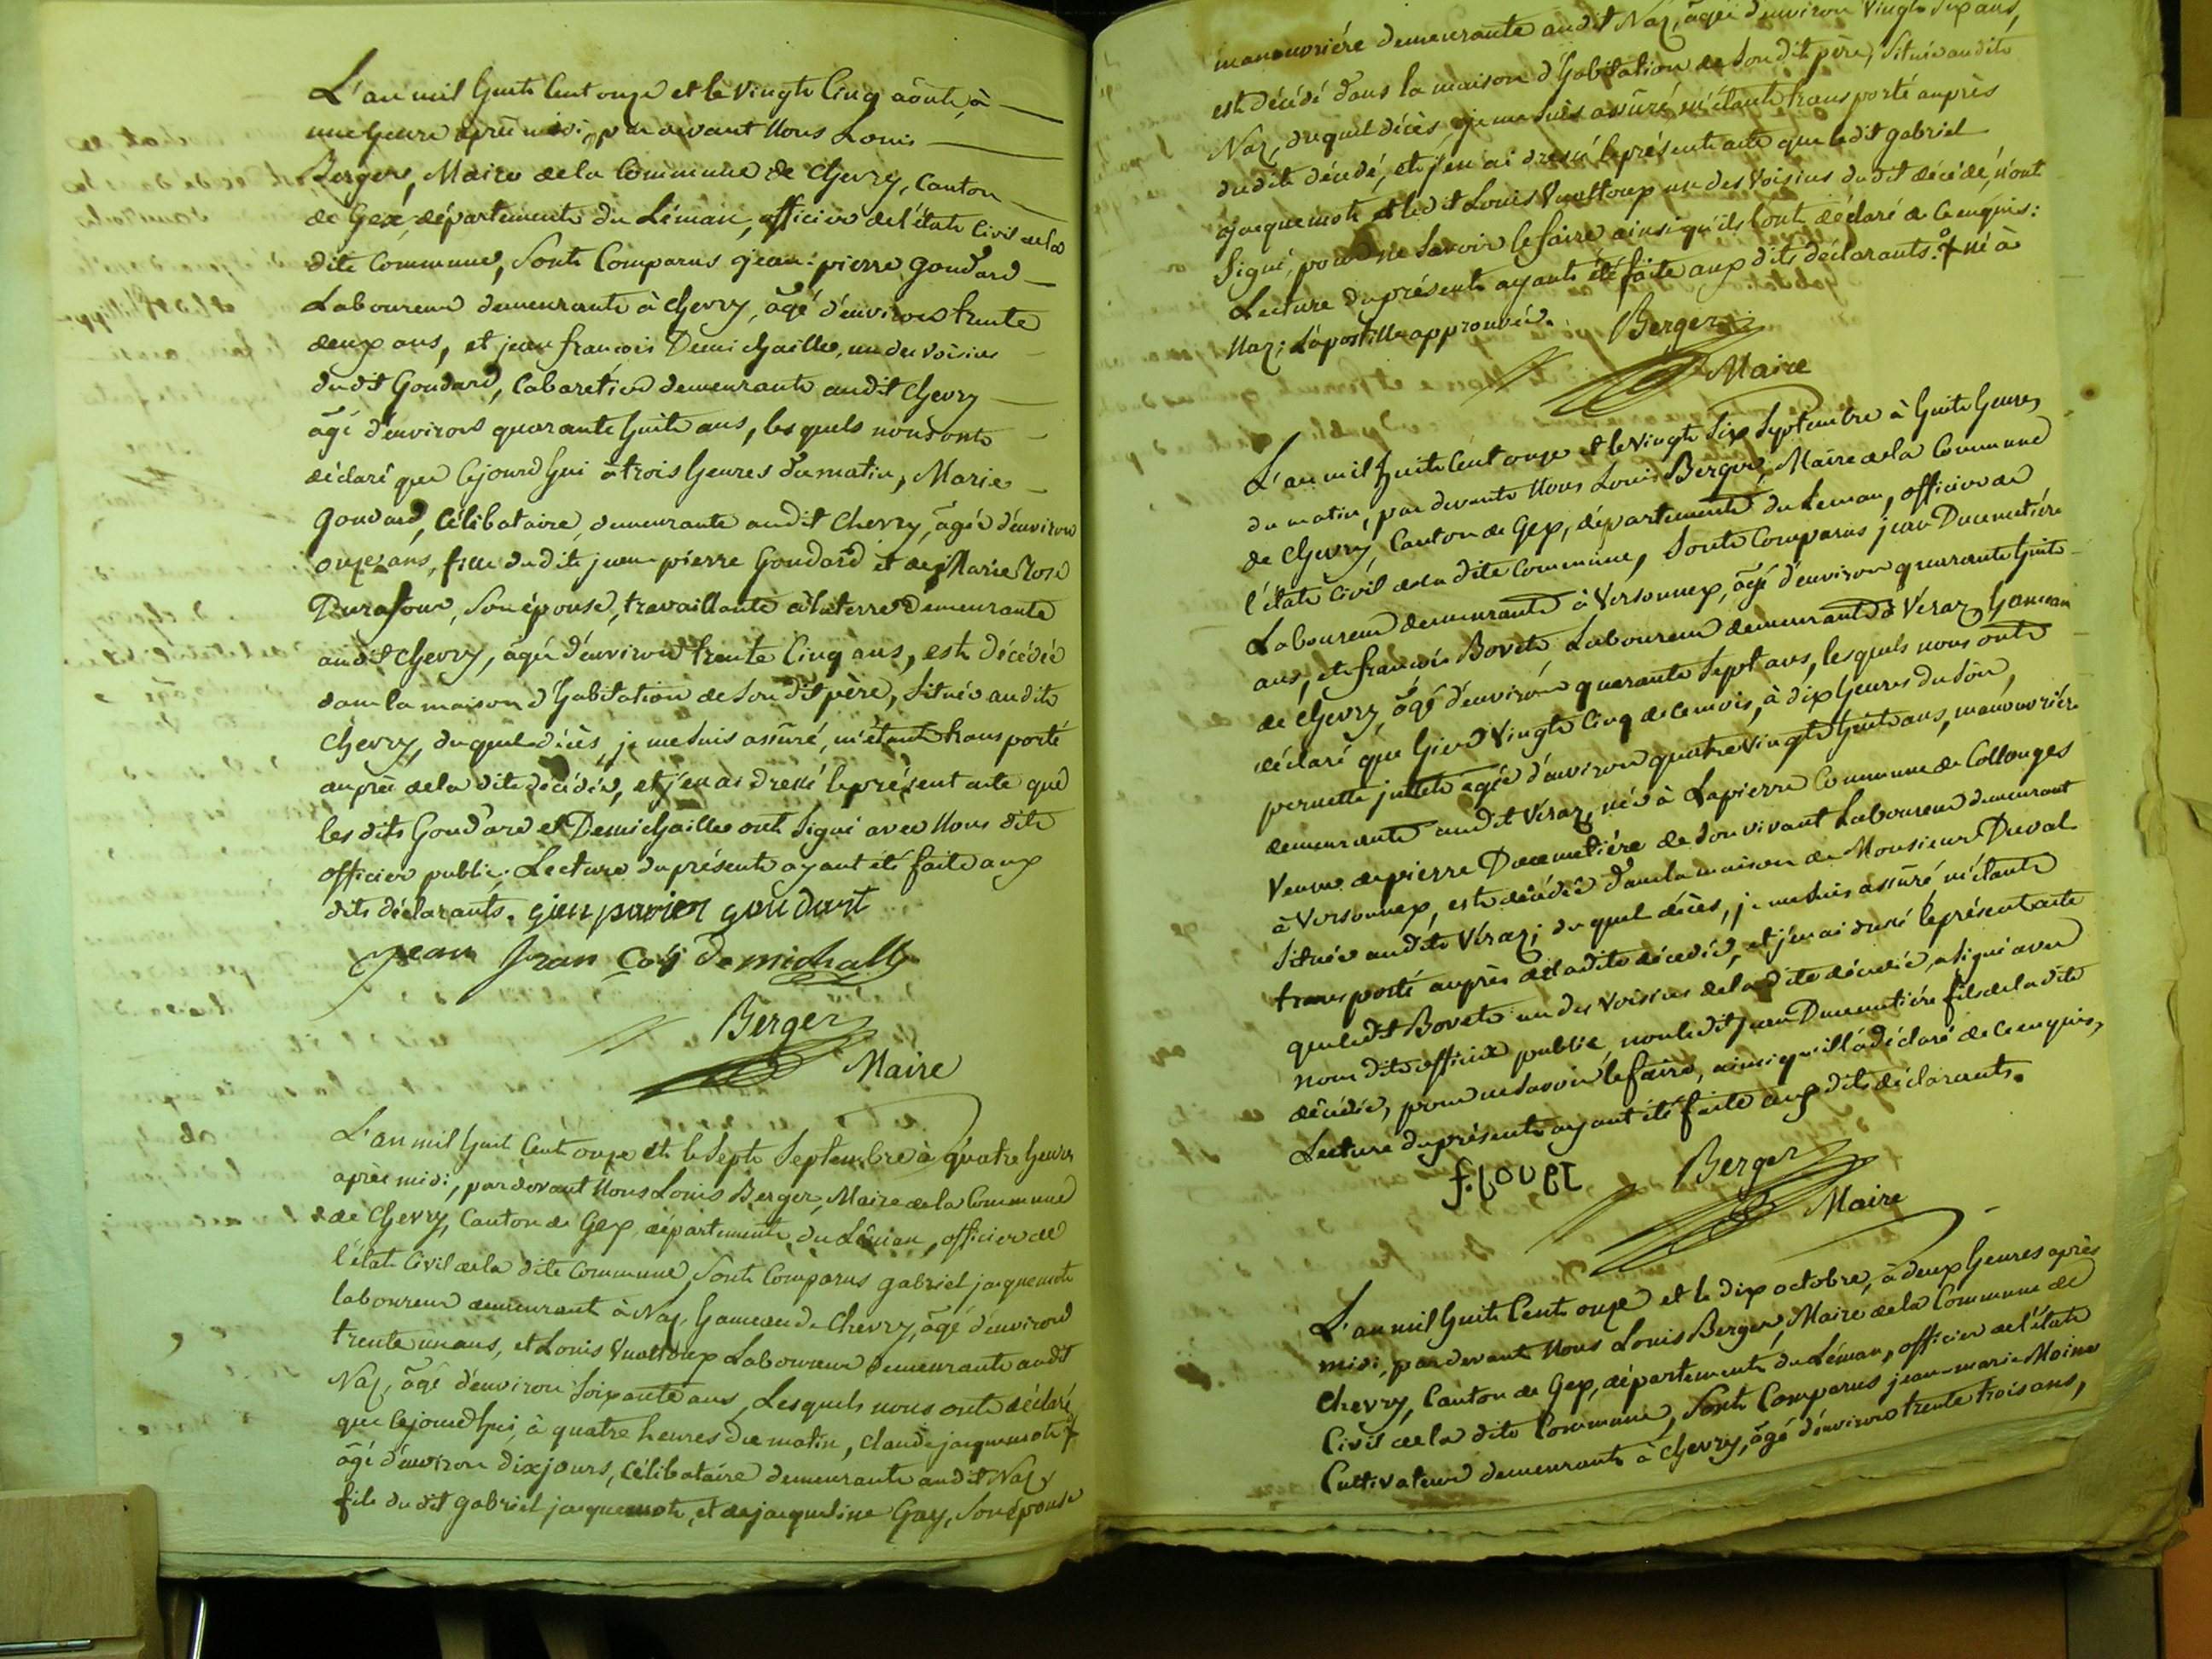 L'an mil huit Cent onze et le vingt Cinq aôut, à
une heure après midi, par devant Nous Louis
Berger, Maire de la Commune de Chevry, Canton
de Gex, département du Léman, officier de l'état Civil de la
dite Commune, Sont Comparus jean-pierre Goudard
Laboureur demeurant à Chevry, âgé d'environ trente
deux ans, et jean françois Demichaille, un des voisins
dudit Goudard, Cabaretier demeurant audit Chevry
âgé d'environ quarante huit ans, lesquels nous ont
déclaré que Cejourd'hui à trois heures du matin, Marie
Goudard, Célibataire, demeurante audit Chevry, âgée d'environ
onze ans, fille dudit jean pierre Goudard et de Marie Rose
Durafour, Son épouse, travaillante à la terre demeurante
audit Chevry, âgée d'environ trente Cinq ans, est décédée
dans la maison d'habitation de Son dit père, Située audit
Chevry, duquel décès, je me suis assûré, m'étant transporté
auprès de la dite décédée, et j'en ai dressé le présent acte que
les dits Goudard et Demichaille ont Signé avec Nous dit
officier public; Lecture du présent ayant été faite aux
dits déclarants. gien pavier goudart
jean fran çois demichalle
Berger
Maire
L'an mil huit Cent onze et le Sept Septembre à quatre heures
après midi, par devant Nous Louis Berger, Maire de la Commune
de Chevry, Canton de Gex, département du Léman, officier de
l'état Civil de la dite Commune, Sont Comparus gabriel jacquemot
laboureur demeurant à Naz, hameau de Chevry, âgé d'environ
trente un ans, et Louis Vuattoux Laboureur demeurant audit
Naz, âgé d'environ Soixante ans, Lesquels nous ont déclaré
que Cejourd'hui, à quatre heures du matin, claude jacquemot
âgé d'environ dix jours, Célibataire demeurant audit Naz,
fils dudit gabriel jacquemot, et de jacqueline Gay, Son épouse
manouvriére demeurante audit Naz, âgée d'environ Vingt Six ans,
est décédé dans la maison d'habitation de Son dit père, Située audit
Naz, duquel décès, je me suis assûré, m'étant transporté auprès
dudit décédé, et j'en ai dressé le présent acte que ledit gabriel
jacquemot et ledit Louis Vuattoux un des voisins dudit décédé, n'ont
Signé, pour ne Savoir le faire ainsi qu'ils l'ont déclaré de Ce enquis:
Lecture du présent ayant été faite aux dits déclarants. né à
Naz; L'apostille approuvée. Berger
Maire
L'an mil huit Cent onze et le Vingt Six Septembre à huit heures
du matin, par devant Nous Louis Berger, Maire de la Commune
de Chevry, Canton de Gex, département du Léman, officier de
l'état Civil de la dite Commune, Sont Comparus jean Ducimetiére
Laboureur demeurant à Versonnex, âgé d'environ quarante huit
ans, et françois Bovet Laboureur demeurant à Véraz, hameau
de Chevry, âgé d'environ quarante Sept ans, lesquels nous ont
déclaré que hier Vingt Cinq de Ce mois, à dix heures du Soir,
pernette jullet âgée d'environ quatre vingt huit ans, manouvriére
demeurante audit Véraz, née à Lapierre Commune de Collonges
Veuve de pierre Ducimetiére de Son vivant Laboureur demeurant
à Versonnex, est décédée dans la maison de Monsieur Duval
Située audit Véraz; duquel décès, je me suis assûré, m'étant
transporté auprès de la dite décédée, et j'en ai dressé le présent acte
que ledit Bovet un des voisins de la dite décédée, a Signé avec
nous dit officier public non ledit jean Ducimetiére fils de la dite
décédée, pour ne Savoir le faire, ainsi qu'il l'a déclaré de Ce enquis,
Lecture du présent ayant été faite aux dits déclarants.
Berger
Maire
L'an mil huit Cent onze et le dix octobre, à deux heures après
midi, par devant Nous Louis Berger, Maire de la Commune de
Chevry, Canton de Gex, département du Léman, officier de l'état
Civil de la dite Commune, Sont Comparus jean-marie Moine
Cultivateur demeurant à Chevry, âgé d'environ trente trois ans,